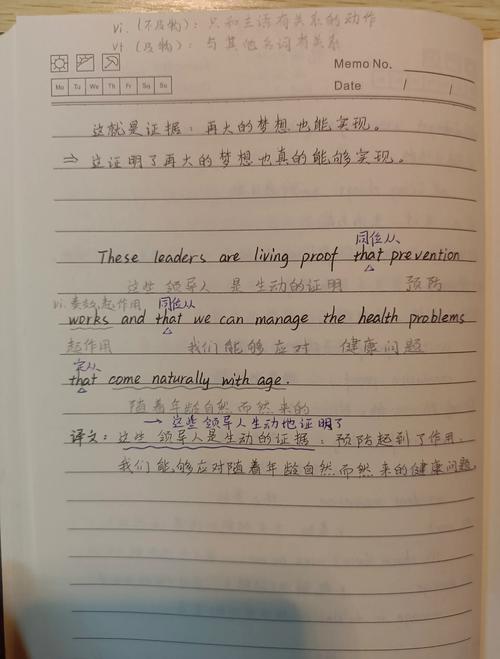 vi.(不及物)：只和主语有关系的动作
vt(及物)：与其他名词有关系
Memo No.
Mo Tu We Th Fr Sa Su
Date / /
这就是证据：再大的梦想也能实现。
⇒ 这证明了再大的梦想也真的能够实现。
同位从
These leaders are living proof that prevention
这些 领导人 是 生动的证明 预防
vi.奏效,起作用 同位从
works and that we can manage the health problems
起作用 我们能够应对 健康问题
定从
that come naturally with age.
随着年龄自然而然来的
→ 这些领导人生动地证明了
译文：这些 领导人是生动的证据：预防起到了作用，
我们能够应对随着年龄自然而然来的健康问题。